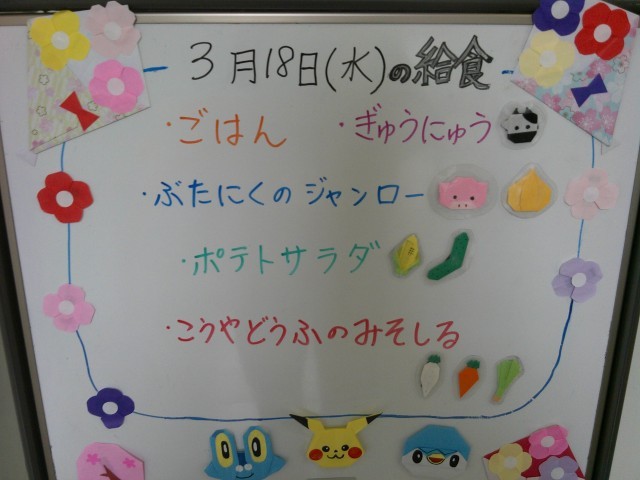 3月18日(水)の給食
・ごはん ・ぎゅうにゅう
・ぶたにくのジャンロー
・ポテトサラダ
・こうやどうふのみそしる